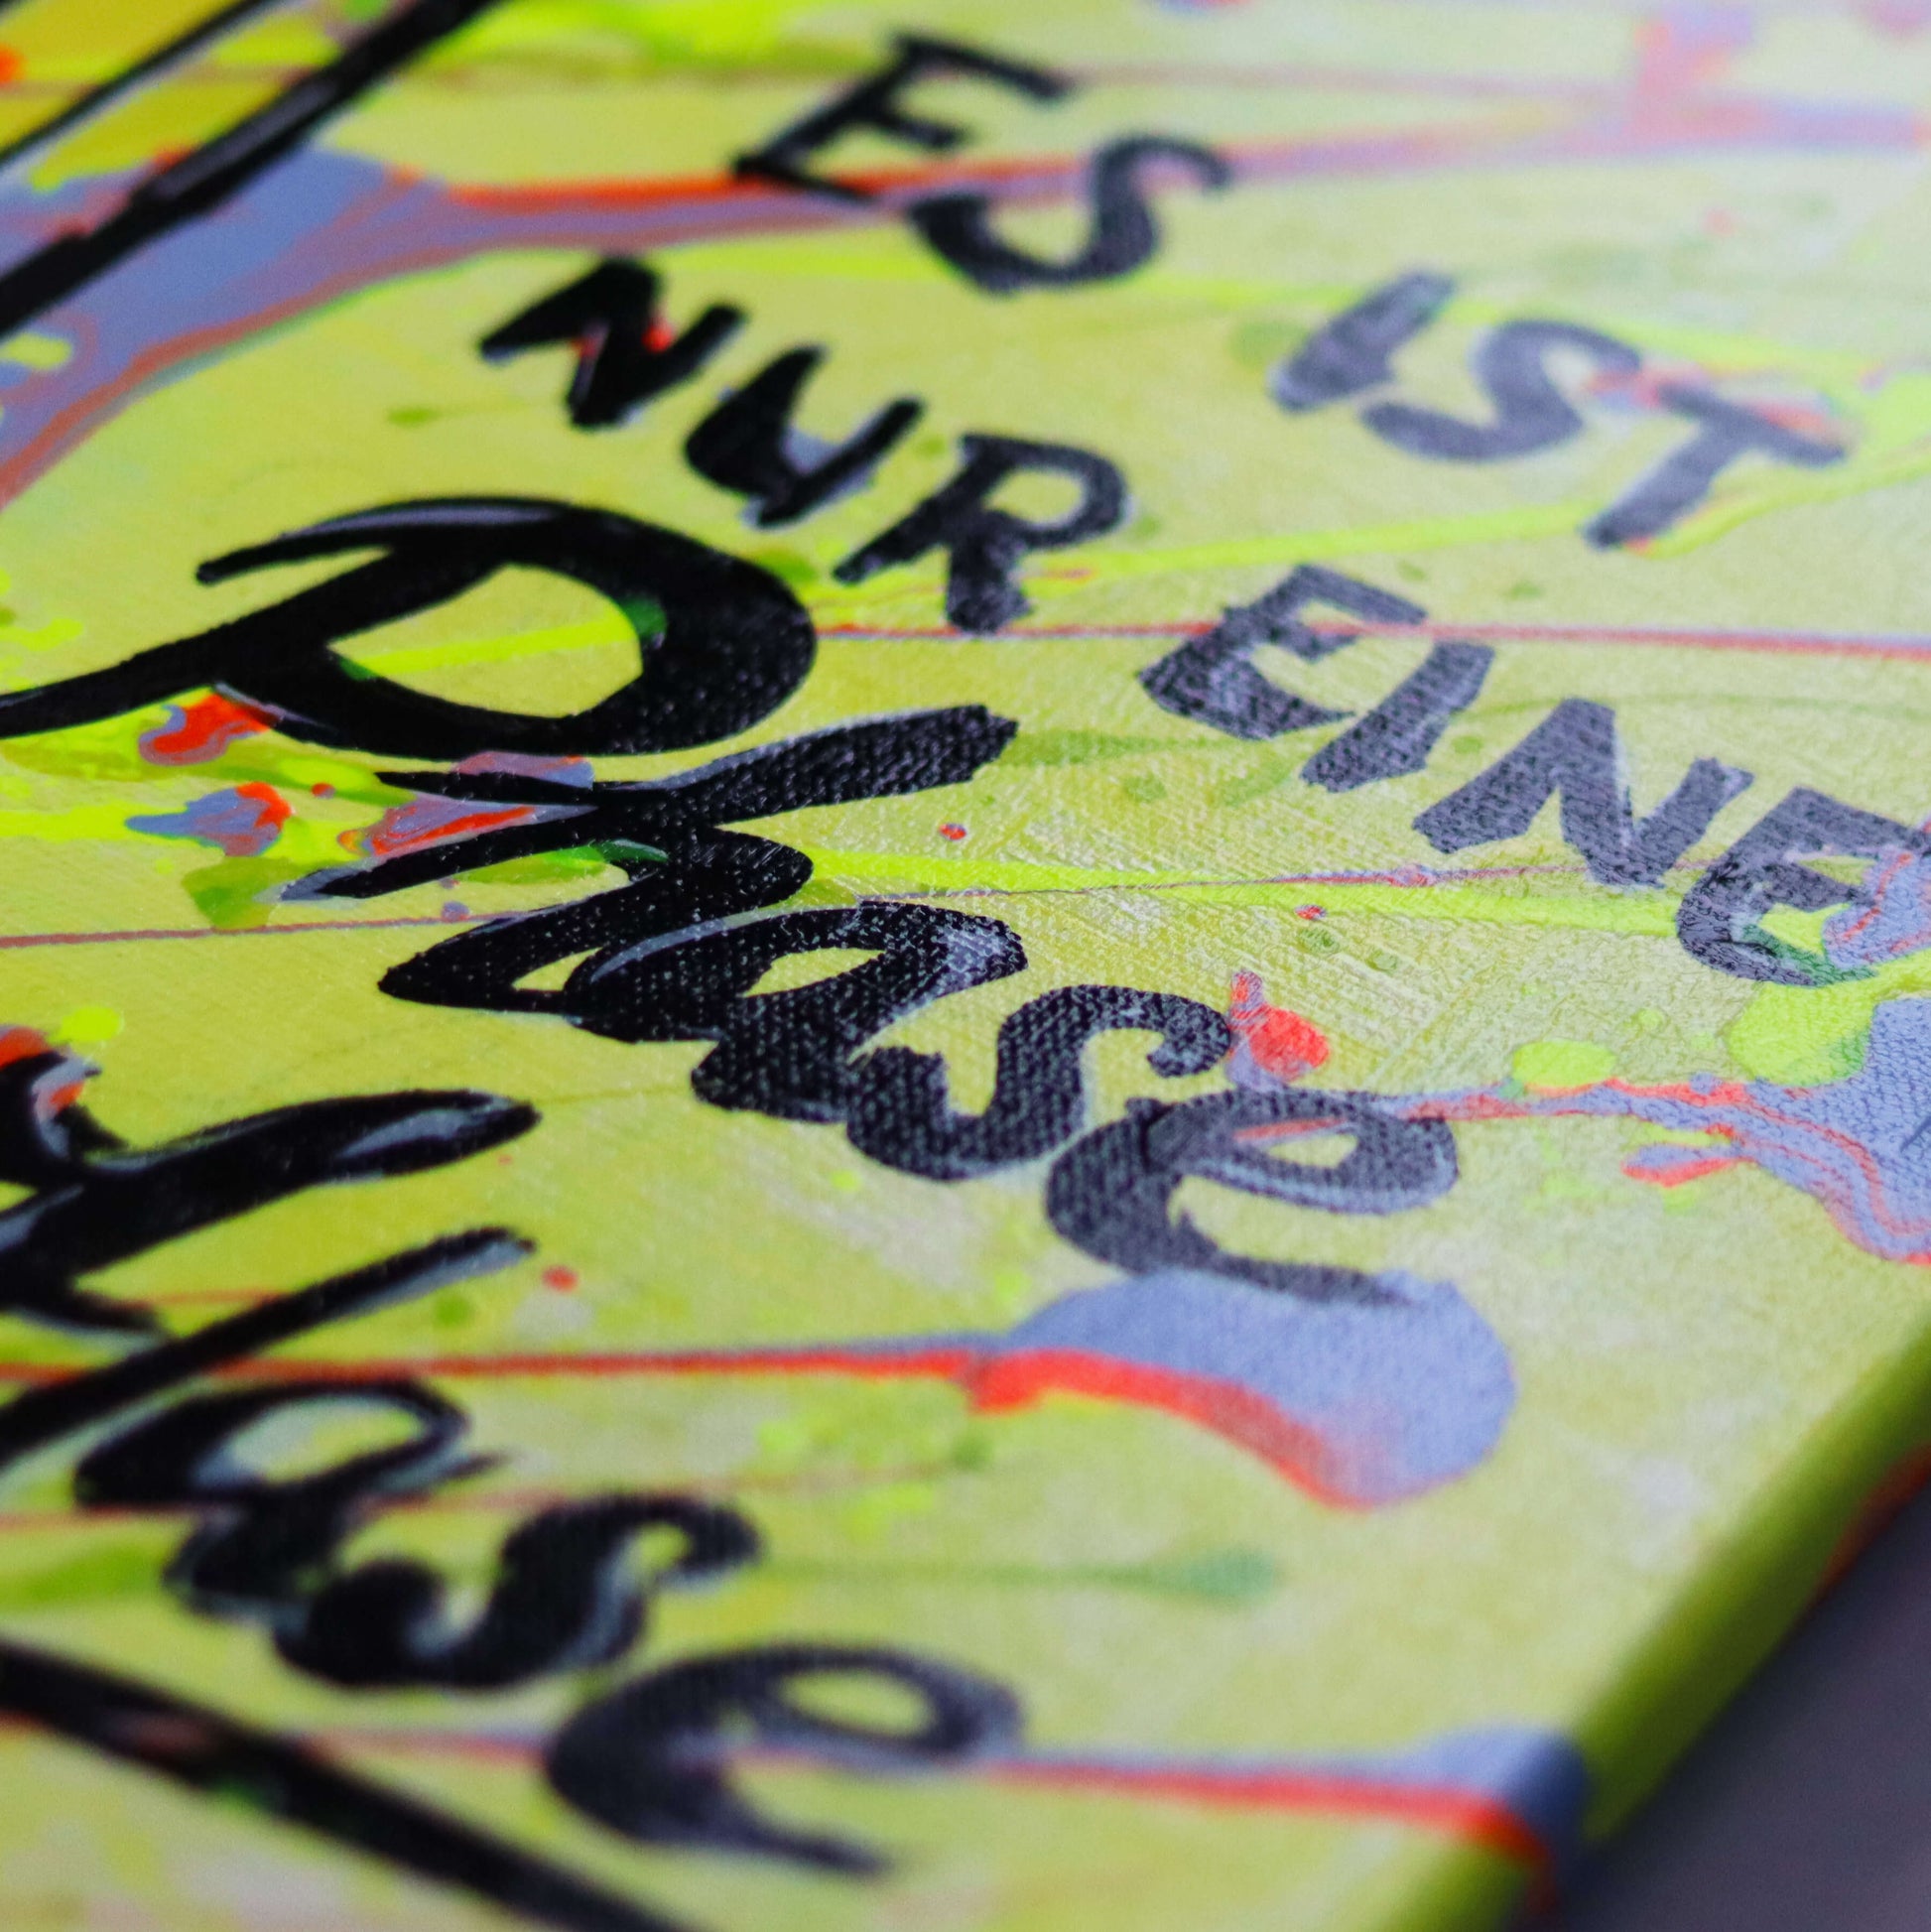 ES IST
NUR EINE
Phase
Hase